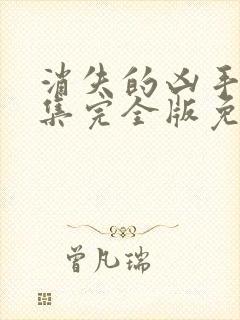 消失的凶手
集完全版免
曾凡瑞